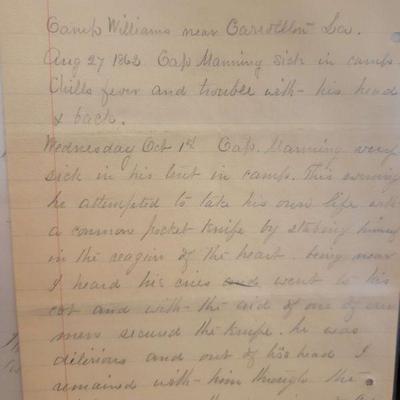 Camp Williams near Carrollton La.
Aug 27 1862 Cap Manning sick in camp.
Chills fever and trouble with his head
& back.
Wednesday Oct 1st Cap. Manning very
sick in his tent in camp. This evening
he attempted to take his own life with
a common pocket knife by stabing himself
in the reagion of the heart. being near
I heard his cries and went to his
cot and with the aid of one of our
men secured the knife. he was
dilirious and out of his head I
remained with him through the